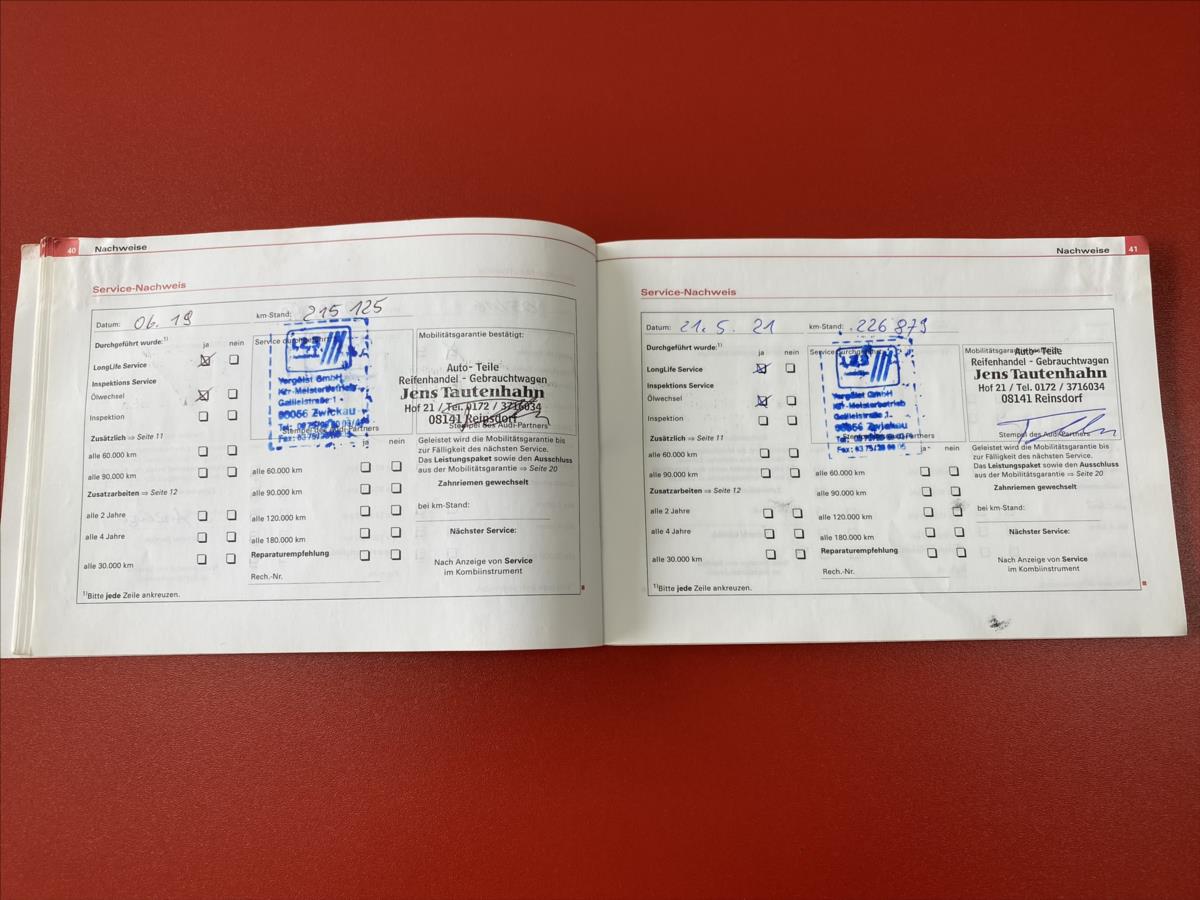 40 Nachweise
Service-Nachweis
Datum: 06. 19 km-Stand: 215 125
Durchgeführt wurde:1)
ja nein
LongLife Service
Inspektions Service
Ölwechsel
Inspektion
Zusätzlich ⇒ Seite 11
alle 60.000 km
alle 90.000 km
Zusatzarbeiten ⇒ Seite 12
alle 2 Jahre
alle 4 Jahre
alle 30.000 km
1)Bitte jede Zeile ankreuzen.
Service durchgeführt:
Vergölst GmbH
Kfz-Meisterbetrieb
Galileistraße 1
08056 Zwickau
Stempel des Audi-Partners
ja nein
alle 60.000 km
alle 90.000 km
alle 120.000 km
alle 180.000 km
Reparaturempfehlung
Rech.-Nr.
Mobilitätsgarantie bestätigt:
Auto- Teile
Reifenhandel - Gebrauchtwagen
Jens Tautenhahn
Hof 21 / Tel. 0172 / 3716034
08141 Reinsdorf
Stempel des Audi-Partners
Geleistet wird die Mobilitätsgarantie bis
zur Fälligkeit des nächsten Service.
Das Leistungspaket sowie den Ausschluss
aus der Mobilitätsgarantie ⇒ Seite 20
Zahnriemen gewechselt
bei km-Stand:
Nächster Service:
Nach Anzeige von Service
im Kombiinstrument
Nachweise 41
Service-Nachweis
Datum: 21. 5. 21 km-Stand: 226 879
Durchgeführt wurde:1)
ja nein
LongLife Service
Inspektions Service
Ölwechsel
Inspektion
Zusätzlich ⇒ Seite 11
alle 60.000 km
alle 90.000 km
Zusatzarbeiten ⇒ Seite 12
alle 2 Jahre
alle 4 Jahre
alle 30.000 km
1)Bitte jede Zeile ankreuzen.
Service durchgeführt:
Vergölst GmbH
Kfz-Meisterbetrieb
Galileistraße 1
08056 Zwickau
Stempel des Audi-Partners
ja nein
alle 60.000 km
alle 90.000 km
alle 120.000 km
alle 180.000 km
Reparaturempfehlung
Rech.-Nr.
Auto- Teile
Reifenhandel - Gebrauchtwagen
Jens Tautenhahn
Hof 21 / Tel. 0172 / 3716034
08141 Reinsdorf
Stempel des Audi-Partners
Geleistet wird die Mobilitätsgarantie bis
zur Fälligkeit des nächsten Service.
Das Leistungspaket sowie den Ausschluss
aus der Mobilitätsgarantie ⇒ Seite 20
Zahnriemen gewechselt
bei km-Stand:
Nächster Service:
Nach Anzeige von Service
im Kombiinstrument